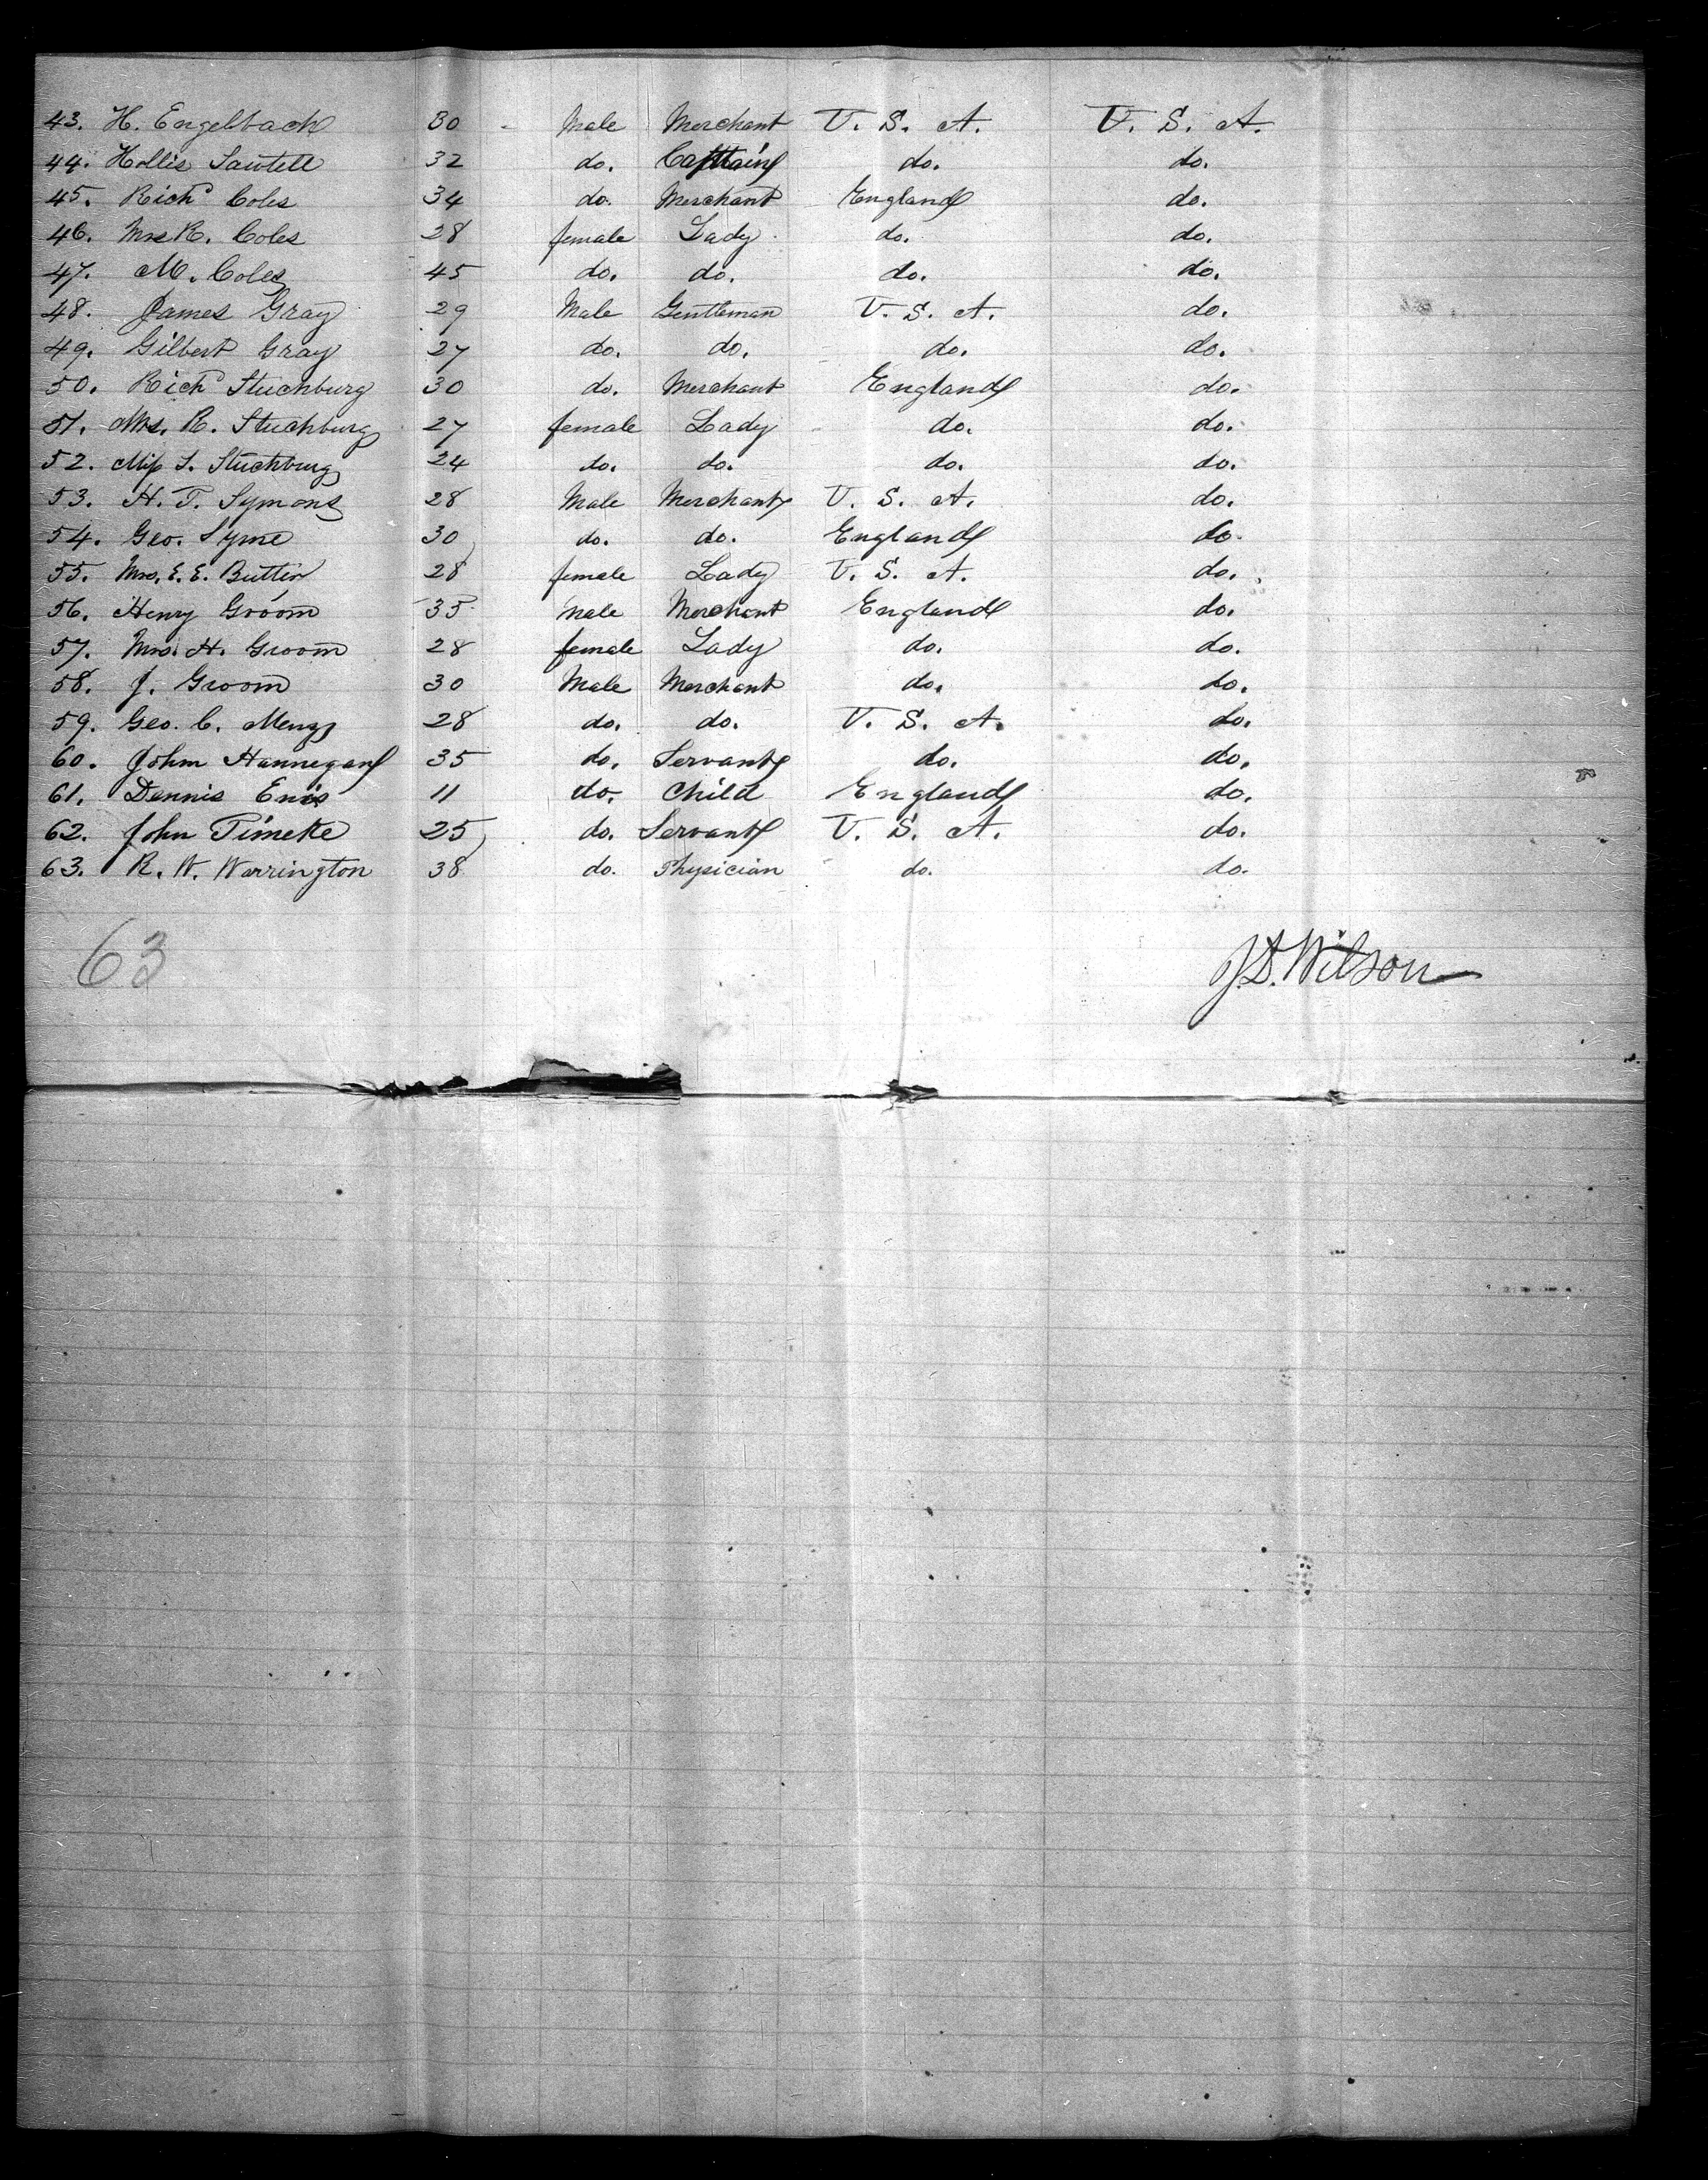 43. H. Engelbach 30 Male Merchant U. S. A. U. S. A.
44. Hollis Sawtell 32 do. Captain do. do.
45. Rich Coles 34 do. Merchant England do.
46. Mrs R. Coles 28 female Lady do. do.
47. M. Coles 45 do. do. do. do.
48. James Gray 29 Male Gentleman U. S. A. do.
49. Gilbert Gray 27 do. do. do. do.
50. Rich Stuchburg 30 do. Merchant England do.
51. Mrs. R. Stuchburg 27 female Lady do. do.
52. Miss S. Stuchburg 24 do. do. do. do.
53. H. T. Symons 28 Male Merchant U. S. A. do.
54. Geo. Syme 30 do. do. England do.
55. Mrs. E. E. Buttin 28 female Lady U. S. A. do.
56. Henry Groom 35 male Merchant England do.
57. Mrs. H. Groom 28 female Lady do. do.
58. J. Groom 30 Male Merchant do. do.
59. Geo. C. Meng 28 do. do. U. S. A. do.
60. John Hannegan 35 do. Servant do. do.
61. Dennis Enis 11 do. Child England do.
62. John Timeke 25 do. Servant U. S. A. do.
63. R. W. Warrington 38 do. Physician do. do.
63
J.D. Wilson